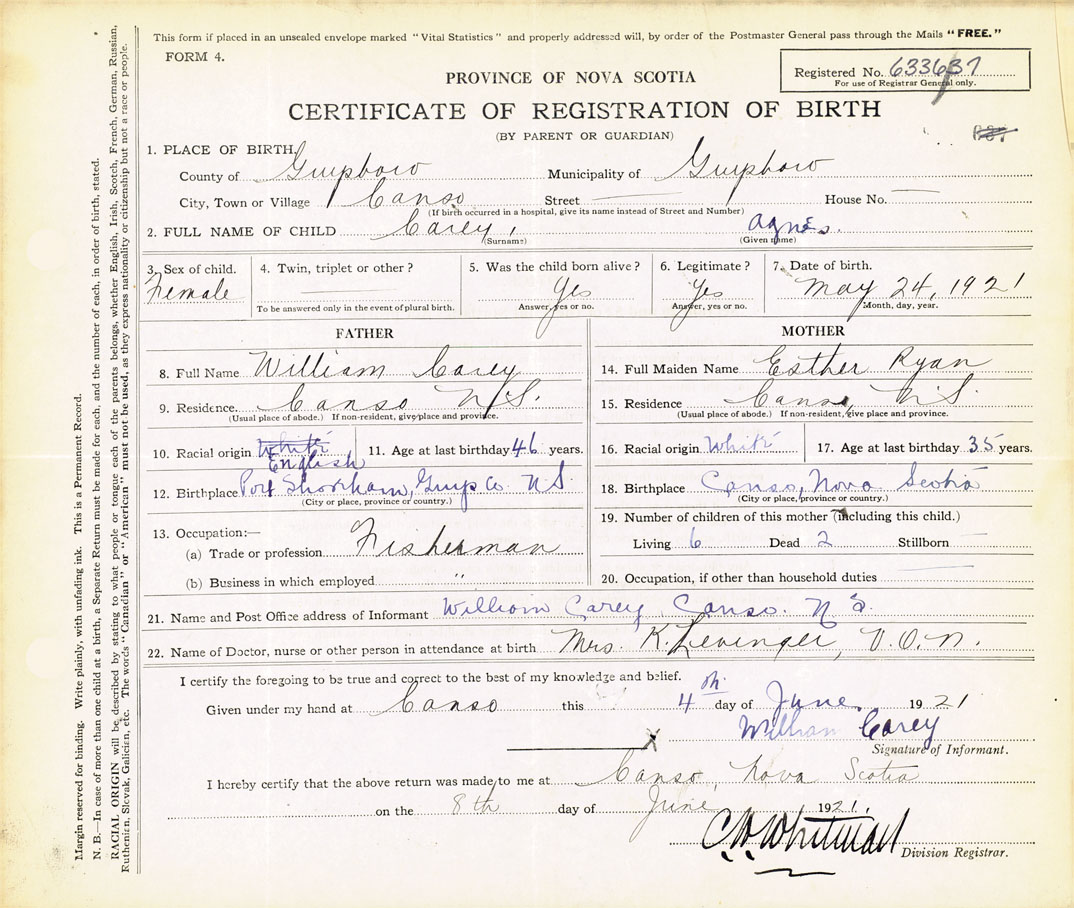 This form if placed in an unsealed envelope marked "Vital Statistics" and properly addressed will, by order of the Postmaster General pass through the Mails "FREE."
FORM 4.
Registered No. 633637
For use of Registrar General only.
PROVINCE OF NOVA SCOTIA
CERTIFICATE OF REGISTRATION OF BIRTH
(BY PARENT OR GUARDIAN)
1. PLACE OF BIRTH
County of Guysboro Municipality of Guysboro
City, Town or Village Canso Street House No.
(If birth occurred in a hospital, give its name instead of Street and Number)
2. FULL NAME OF CHILD Carey, Agnes.
(Surname) (Given name)
3. Sex of child. 4. Twin, triplet or other? 5. Was the child born alive? 6. Legitimate? 7. Date of birth.
Female Yes Yes May 24, 1921
To be answered only in the event of plural birth. Answer, yes or no. Answer, yes or no. Month, day, year.
FATHER
8. Full Name William Carey
9. Residence Canso N.S.
(Usual place of abode.) If non-resident, give place and province.
10. Racial origin White English 11. Age at last birthday 46 years.
12. Birthplace Port Shoreham, Guys Co. N S.
(City or place, province or country.)
13. Occupation:—
(a) Trade or profession Fisherman
(b) Business in which employed "
MOTHER
14. Full Maiden Name Esther Ryan
15. Residence Canso, N.S.
(Usual place of abode.) If non-resident, give place and province.
16. Racial origin White 17. Age at last birthday 35 years.
18. Birthplace Canso, Nova Scotia
(City or place, province or country.)
19. Number of children of this mother (including this child.)
Living 6 Dead 2 Stillborn
20. Occupation, if other than household duties
21. Name and Post Office address of Informant William Carey Canso. N S.
22. Name of Doctor, nurse or other person in attendance at birth Mrs. K. Levinger, V.O.N.
I certify the foregoing to be true and correct to the best of my knowledge and belief.
Given under my hand at Canso this 4th day of June 1921
X William Carey
Signature of Informant.
I hereby certify that the above return was made to me at Canso, Nova Scotia
on the 8th day of June, 1921.
C. W. Whitman
Division Registrar.
Margin reserved for binding. Write plainly, with unfading ink. This is a Permanent Record.
N. B.—In case of more than one child at a birth, a Separate Return must be made for each, and the number of each, in order of birth, stated.
RACIAL ORIGIN will be described by stating to what people or tongue each of the parents belongs, whether English, Irish, Scotch, French, German, Russian,
Ruthenian, Slovak, Galician, etc. The words "Canadian" or "American" must not be used, as they express nationality or citizenship but not a race or people.